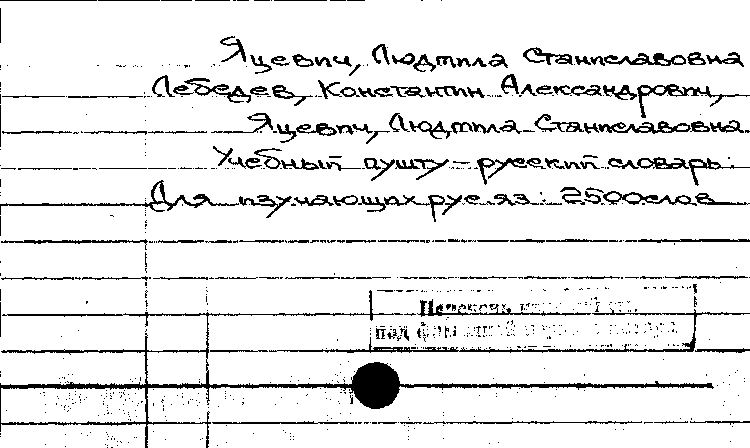 Яцевич, Людмила Станиславовна
Лебедев, Константин Александрович,
Яцевич, Людмила Станиславовна
Учебный пушту-русский словарь:
Для изучающих рус.яз: 2500слов
Перечень
под фамилией автора